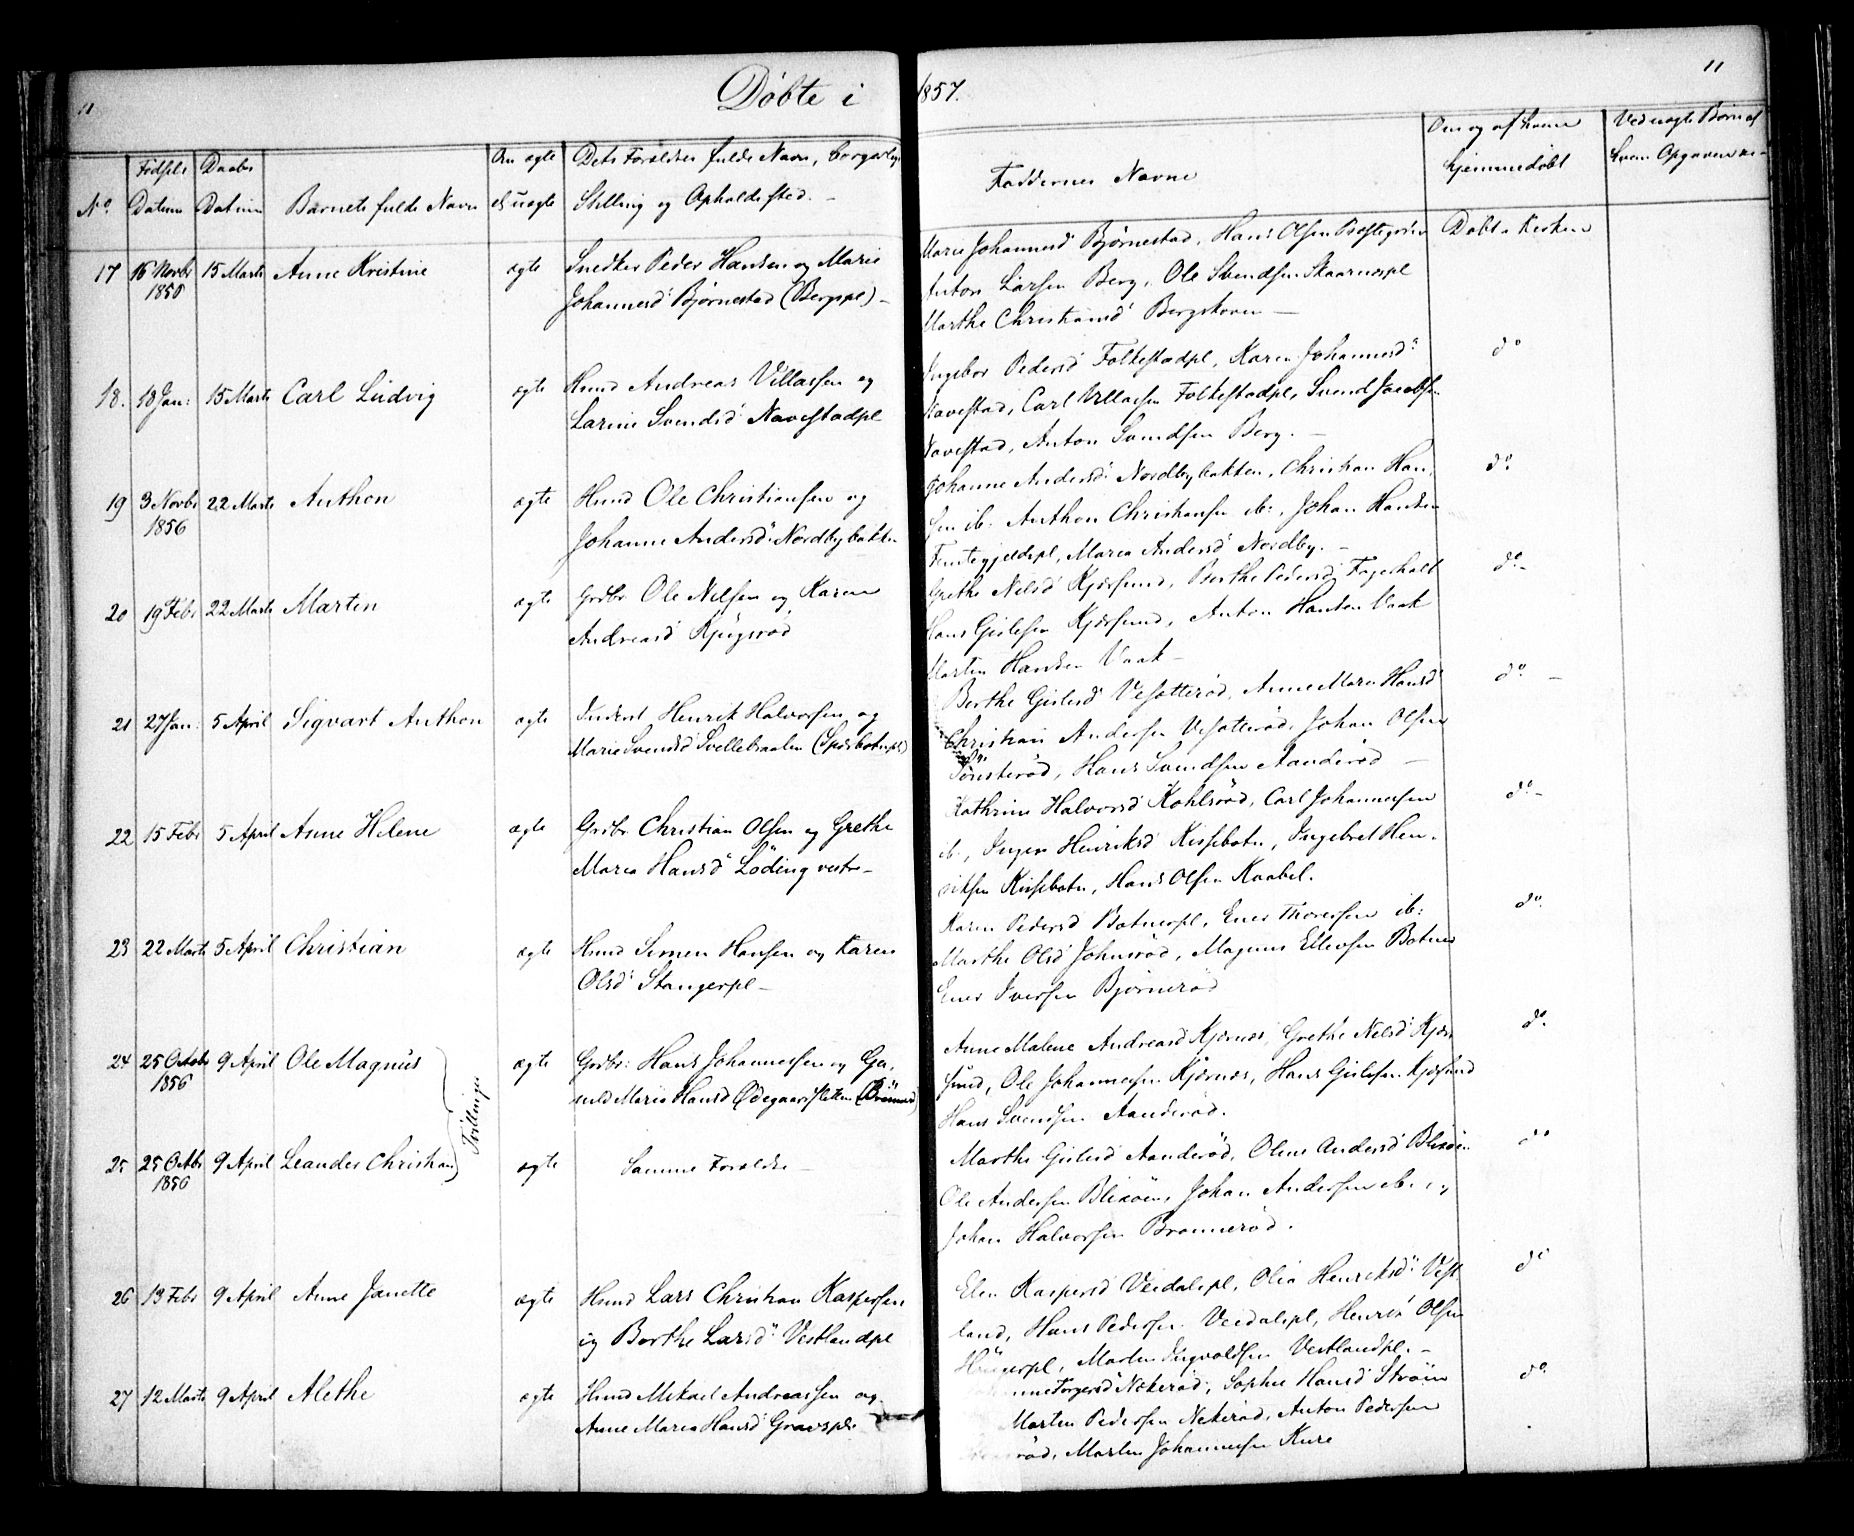 11
Døbte i 1857.
11
No.
Fødsels Datum
Daabs Datum
Barnets fulde Navn
Om ægte el. uægte
Dets Forældres fulde Navn, borgerlige
Stilling og Opholdssted. -
Faddernes Navne
Om og af hvem
hjemmedøbt
Ved uægte Børn af
hvem Opgaven
17 16 Novbr 15 Marts Anne Kristine ægte Snedker Peder Hansen og Marie
1856 Johannesd Bjørnestad (Bergspl) -
Maren Johannesd Bjørnestad, Hans Olsen
Anton Larsen Berg, Ole Svendsen Skaarnespl
Marthe Christiansd Bergskoven -
Døbt i Kirken
18. 18 Jan: 15 Marts Carl Ludvig ægte Huusd Andreas Villassen og
Larine Svendsd Navestadpl
Ingebor Pedersd Folkestadpl, Karen Johannesd
Navestad, Carl Villassen Folkestadpl, Svend Jacobsen
Navestad, Anton Svendsen Berg. -
do
19 3 Novbr 22 Marts Anthon ægte Huusd Ole Christiansen og
1856 Johanne Andersd Nordbybakken
Johanne Andersd Nordbybakken, Christian Han,
sen ib: Anthon Christiansen ib:, Johan Hansen
Maren Andersd Nordby. -
do
20 19 Febr 22 Marts Martin ægte Grdbr Ole Nilsen og Karen
Andreasd
Grethe Nilsd Kjærsund, Berthe Pedersd Fagerholt
Hans Gislesen Kjærsund, Anton Hansen Vaak
Martin Hansen Vaak -
do -
21 27 Jan: 5 April Sigvart Anthon ægte Inderst Henrik Halvorsen og
Marie Svendsd
Berthe Gislesd Vesatterød, Anne Maren Hansd
Christian Andersen Vesatterød, Johan Olsen
Tønsterød, Hans Svendsen Aanderød -
do -
22 15 Febr 5 April Anne Helene ægte Grdbr Christian Olsen og Grethe
Maren Hansd Løding vestre -
Kathrine Halvorsd Kohlsrød, Carl Johannessen
ib:, Inger Henriksd Kissebotn, Ingebret Hen-
riksen Kissebotn, Hans Olsen Kaabel.
do -
23 22 Marts 5 April Christian ægte Huusd Simen Hansen og Karen
Olsd Stangerpl -
Karen Pedersd Botnerpl, Ener Thoressen ib:
Marthe Olsd Johnsrød, Magnus Ellevsen Botner
Ener Iversen Bjørnerød
do.
24 25 Octobr 9 April Ole Magnus ægte Grdbr: Hans Johannessen og Gu,
1856 nild Maria Hansd Ødegaardsletten
Tvillinger
Anne Malene Andreasd Kjærnes, Grethe Nilsd Kjær
sund, Ole Johannessen Kjærnes, Hans Gislesen Kjærsund
Hans Svendsen Aanderød.
do.
25 25 Octbr 9 April Leander Christian ægte Samme Forældre -
1856
Marthe Gislesd Aanderød, Oline Andersd Blixøen
Ole Andersen Blixøen, Johan Andersen ib:, og
Johan Halvorsen Brønnerød.
do
26 13 Febr 9 April Anne Janette ægte Huusd Lars Christian Kaspersen
og Berthe Larsd Vestlandpl
Elen Kaspersd Veidalspl, Olia Henriksd Vest
land, Hans Pedersen Veidalspl, Henrik Olsen
Martin Ingvaldsen Vestlandpl. -
do
27 12 Marts 9 April Alethe ægte Huusd Mikael Andreassen og
Anne Maria Hansd
Torgersd Nekerød, Sophie Hansd Strøm
Martin Pedersen Nekerød, Anton Pedersen
rød, Martin Johannessen Kure
do